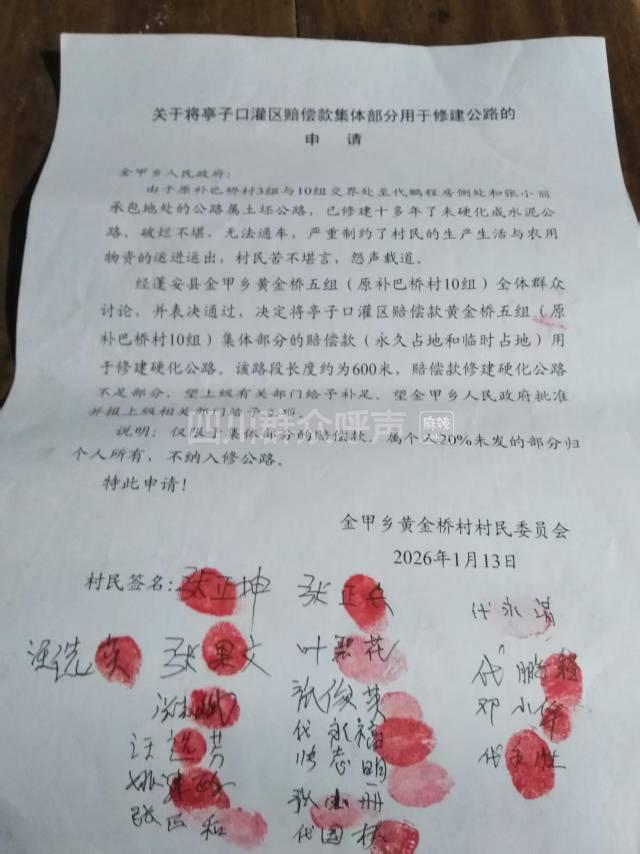 关于将亭子口灌区赔偿款集体部分用于修建公路的
申 请
金甲乡人民政府:
由于原补巴桥村3组与10组交界处至代鹏程房侧处和张小丽
承包地处的公路属土坯公路，已修建十多年了未硬化成水泥公
路，破烂不堪，无法通车，严重制约了村民的生产生活与农用
物资的运进运出，村民苦不堪言，怨声载道。
经蓬安县金甲乡黄金桥五组（原补巴桥村10组）全体群众
讨论，并表决通过，决定将亭子口灌区赔偿款黄金桥五组（原
补巴桥村10组）集体部分的赔偿款（永久占地和临时占地）用
于修建硬化公路。该路段长度约为600米，赔偿款修建硬化公路
不足部分，望上级有关部门给予补足。望金甲乡人民政府批准
并报上级相关部门给予立项。
四川群众呼声 麻辣
说明：仅限于集体部分的赔偿款，属个人20%未发的部分归
个人所有，不纳入修公路。
特此申请！
金甲乡黄金桥村村民委员会
2026年1月13日
村民签名: 张正坤 张正兵 代永清
汪先英 张果文 叶翠花 代鹏程
张俊英 邓小华
汪芳 代永福 代永胜
志明
张正和 张小册
代国栋